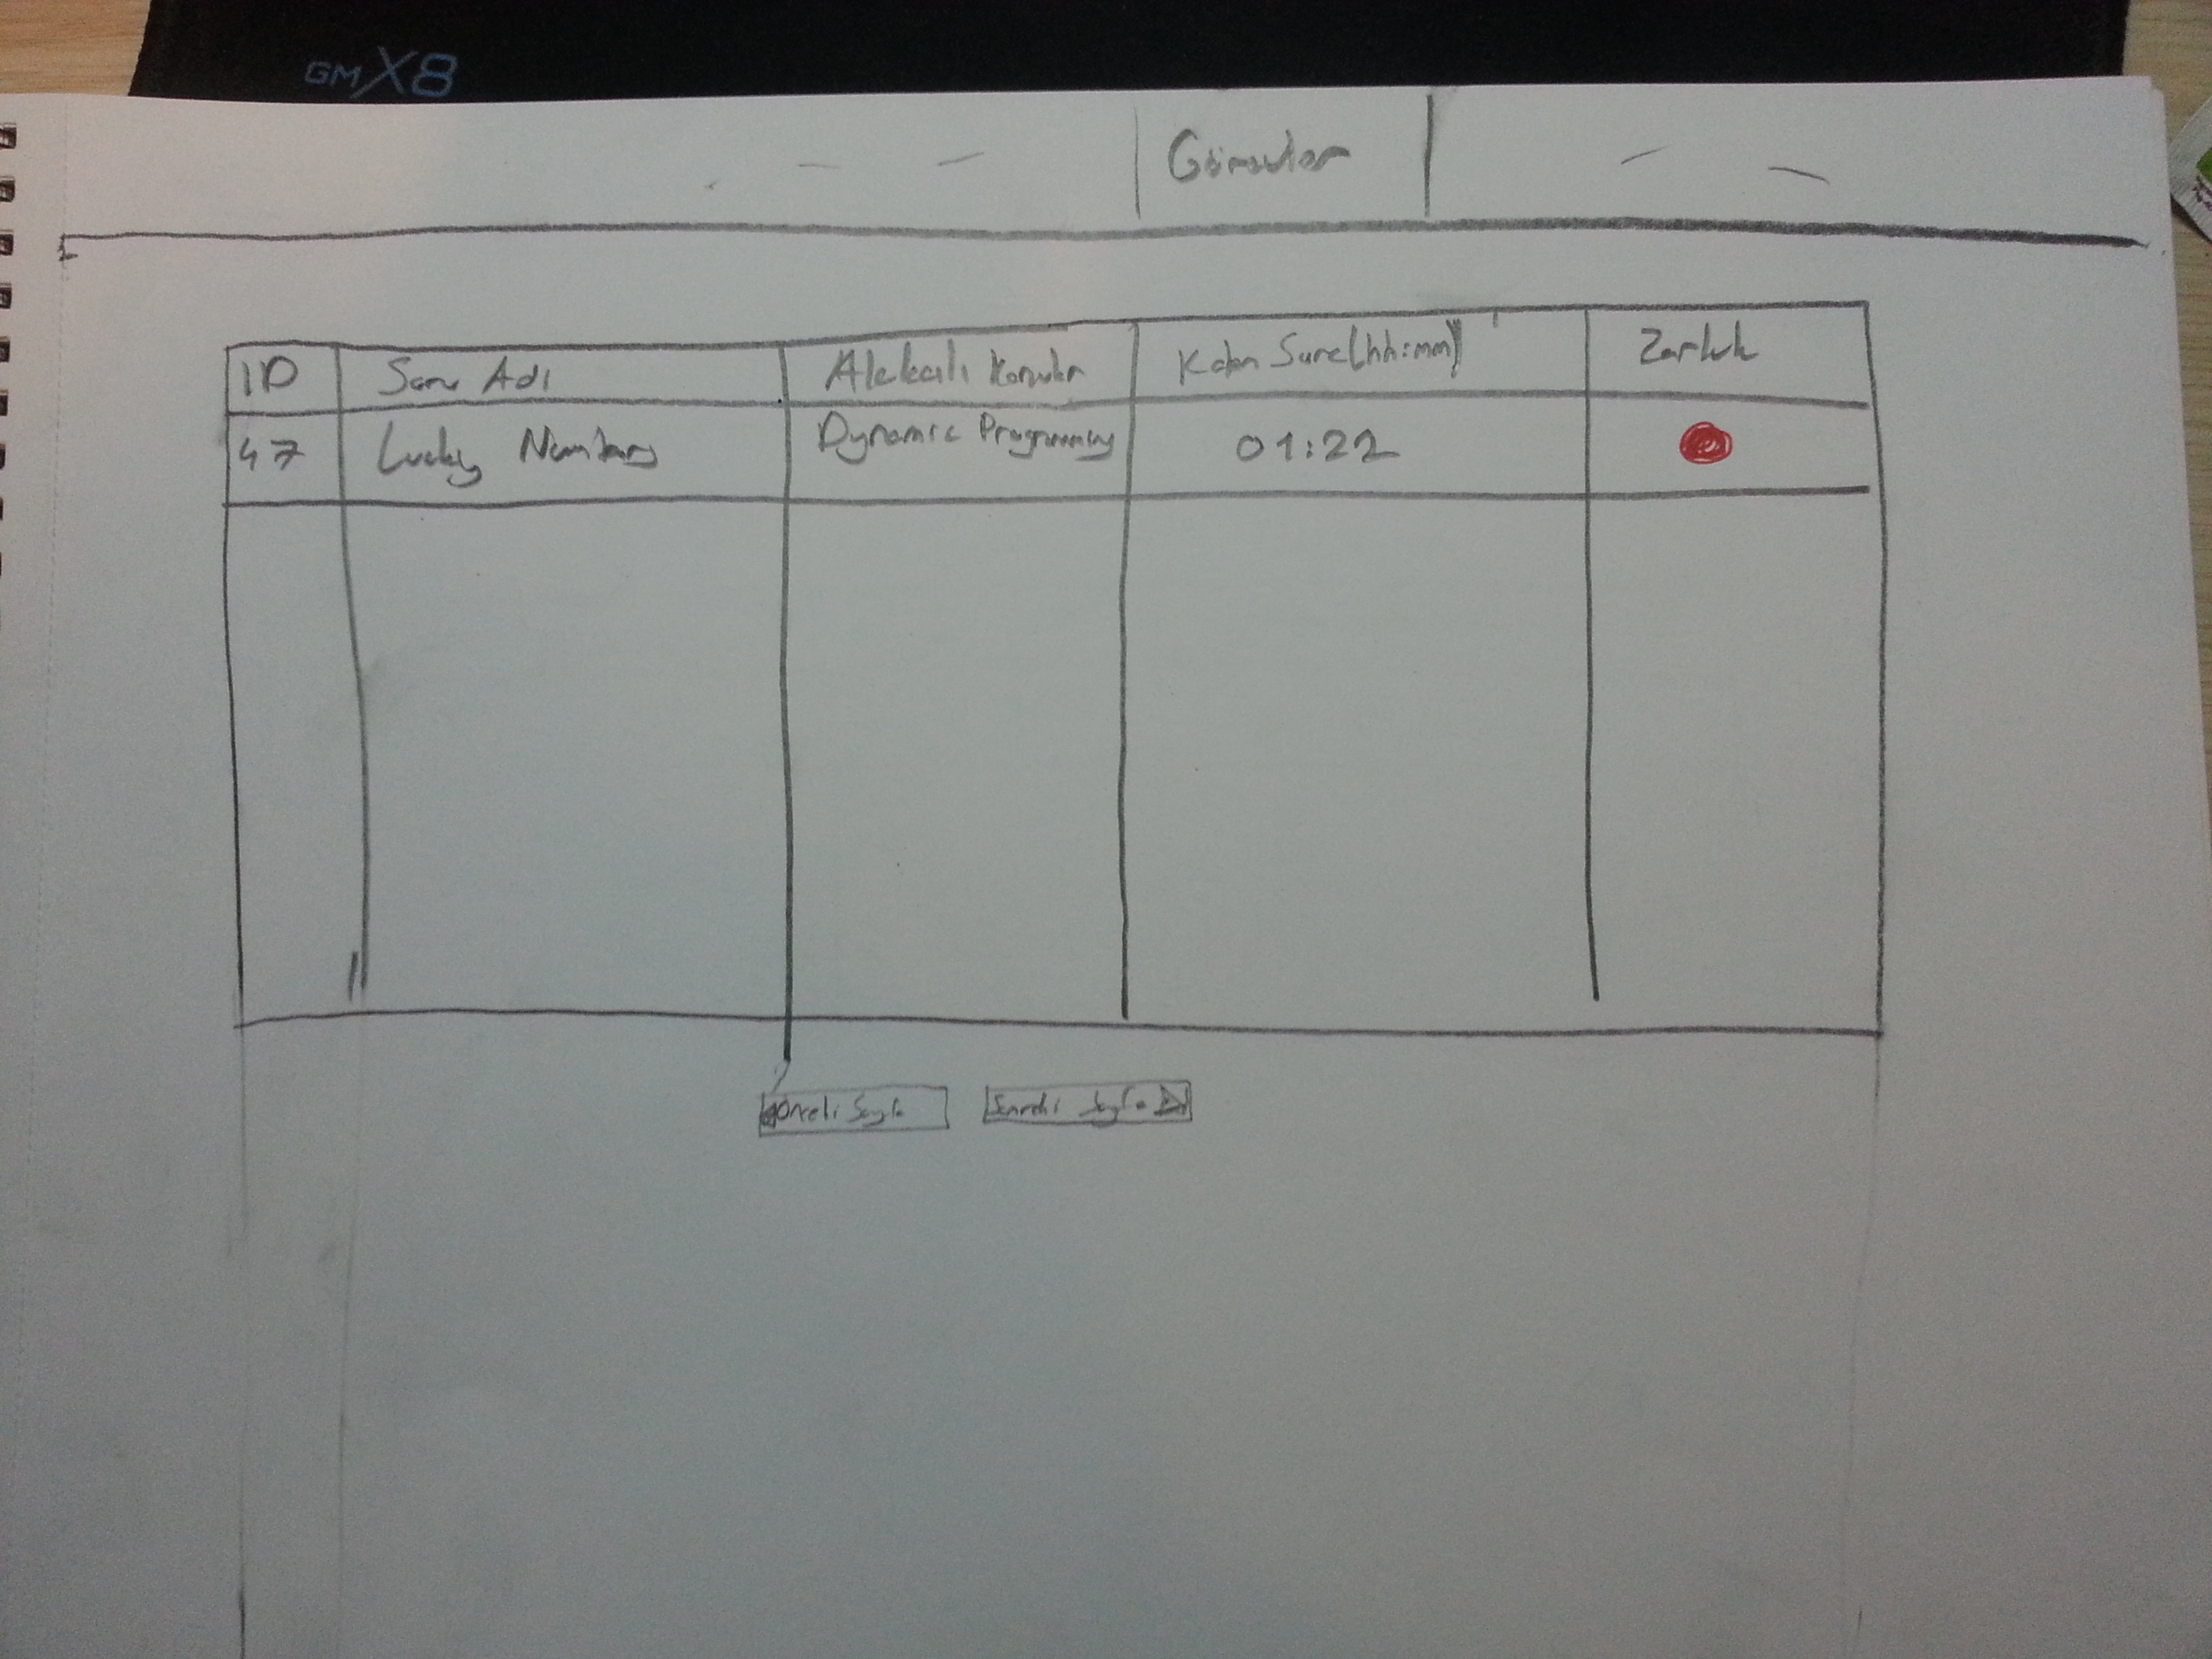 GMX8
Görevler
ID Soru Adı Alakalı Konular Kalan Süre(hh:mm) Zorluk
47 Lucky Numbers Dynamic Programming 01:22
Önceki Sayfa Sonraki Sayfa